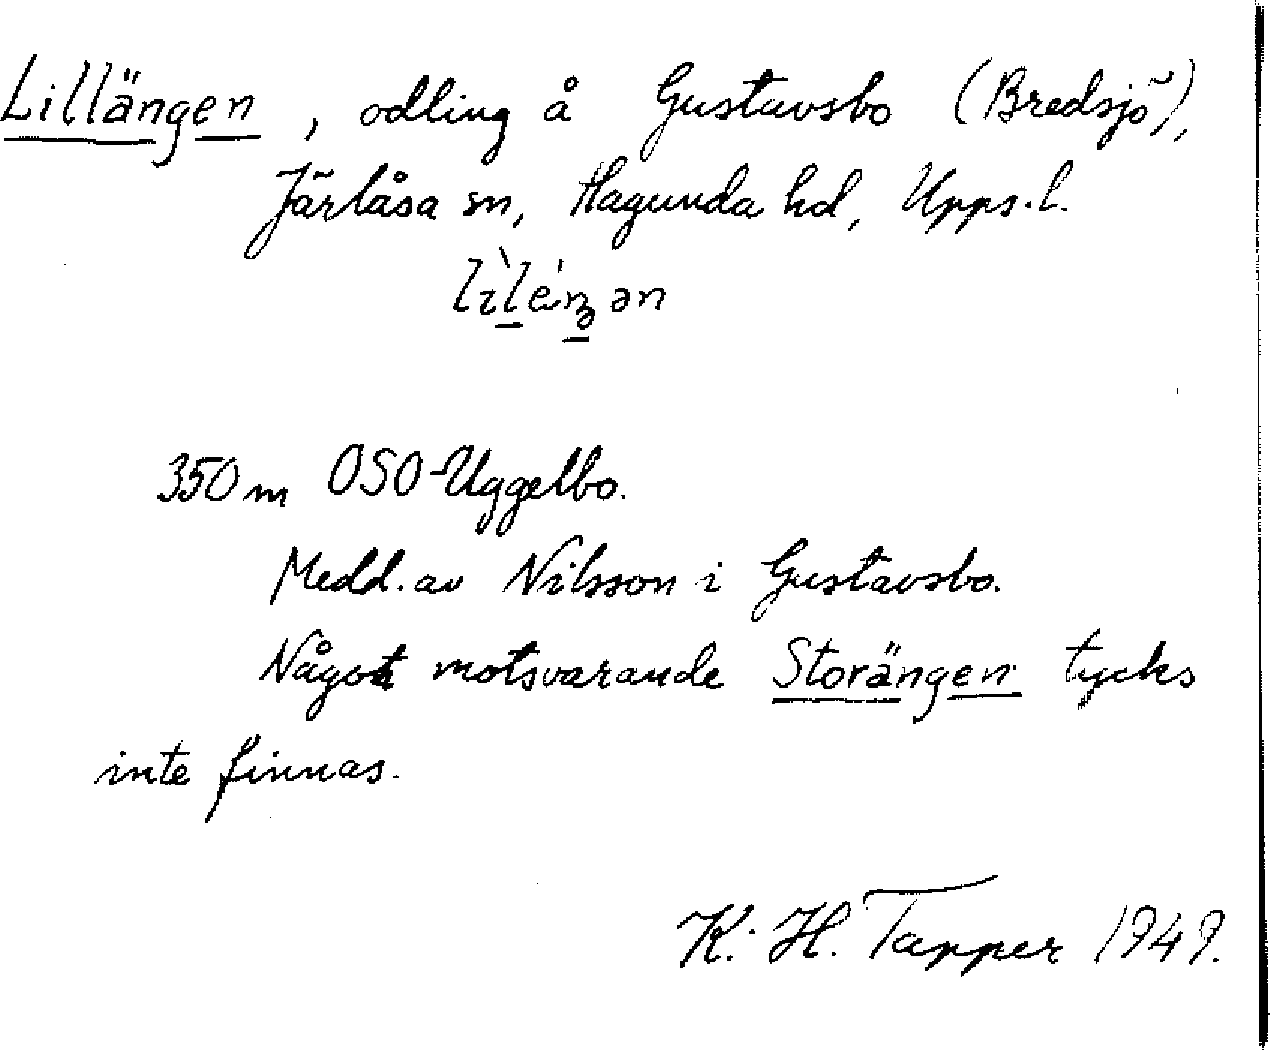 Lillängen, odling å Gustavsbo (Bredsjö),
Järlåsa sn, Hagunda hd, Upps.l.
350 m OSO-Uggelbo.
Medd. av Nilsson i Gustavsbo.
Något motsvarande Storängen tycks
inte finnas.
K. H. Tapper 1949.